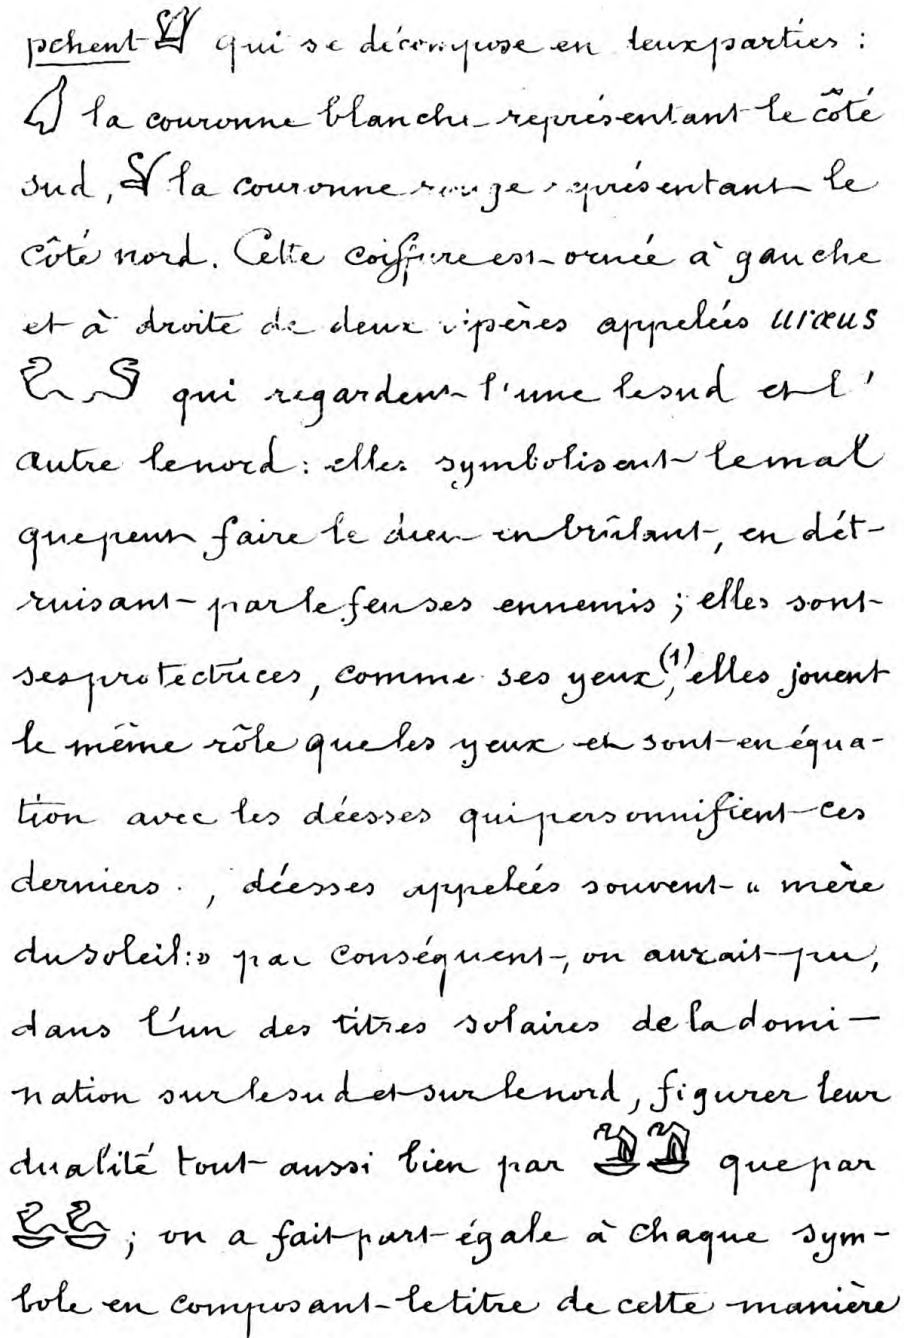 pchent 𓋖 qui se décompose en deux parties :
𓋑 la couronne blanche représentant le côté
sud, 𓋔 la couronne rouge représentant le
côté nord. Cette coiffure est ornée à gauche
et à droite de deux vipères appelées uræus
𓆗 𓆗 qui regardent l'une le sud et l'
autre le nord : elles symbolisent le mal
que peut faire le dieu en brûlant, en dét-
ruisant par le feu ses ennemis ; elles sont
ses protectrices, comme ses yeux (1), elles jouent
le même rôle que les yeux et sont en équa-
tion avec les déesses qui personnifient ces
derniers , déesses appelées souvent « mère
du soleil : » par conséquent, on aurait pu,
dans l'un des titres solaires de la domi-
nation sur le sud et sur le nord, figurer leur
dualité tout aussi bien par que par
; on a fait part égale à chaque sym-
bole en composant le titre de cette manière